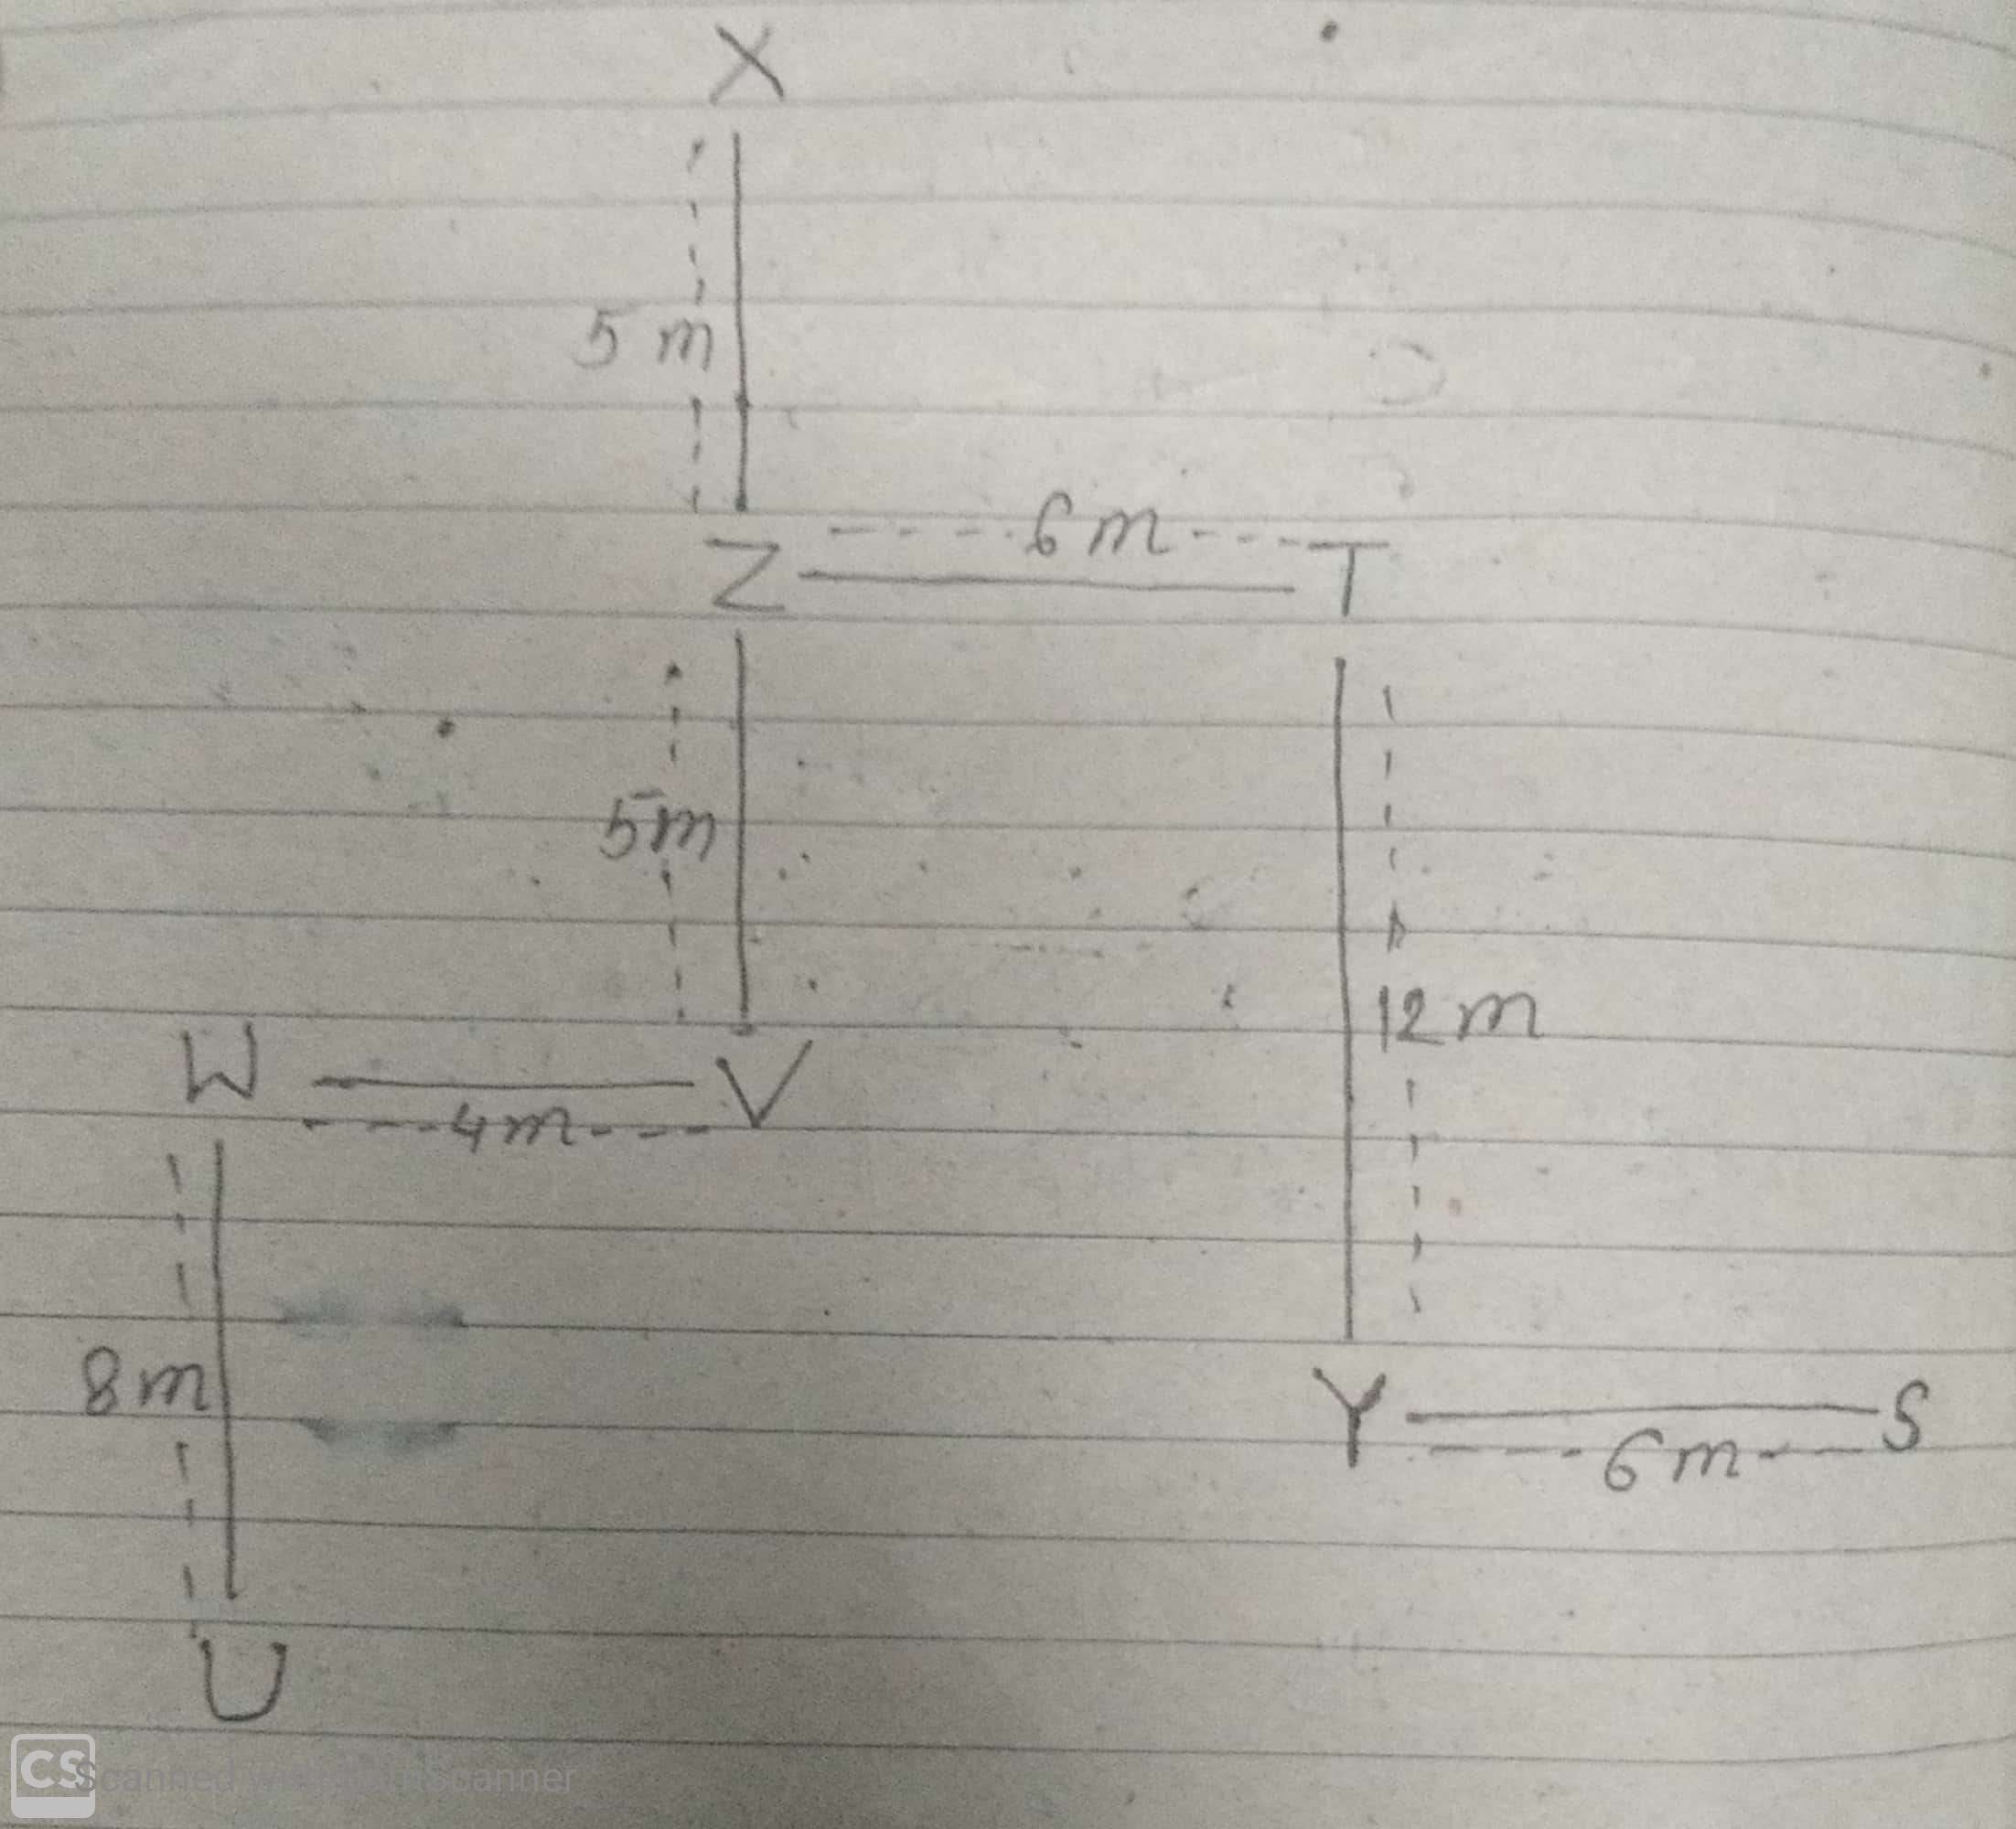 X
5 m
6 m
Z T
5m
12 m
W V
4m
8m
Y S
6 m
U
CS Scanned with CamScanner